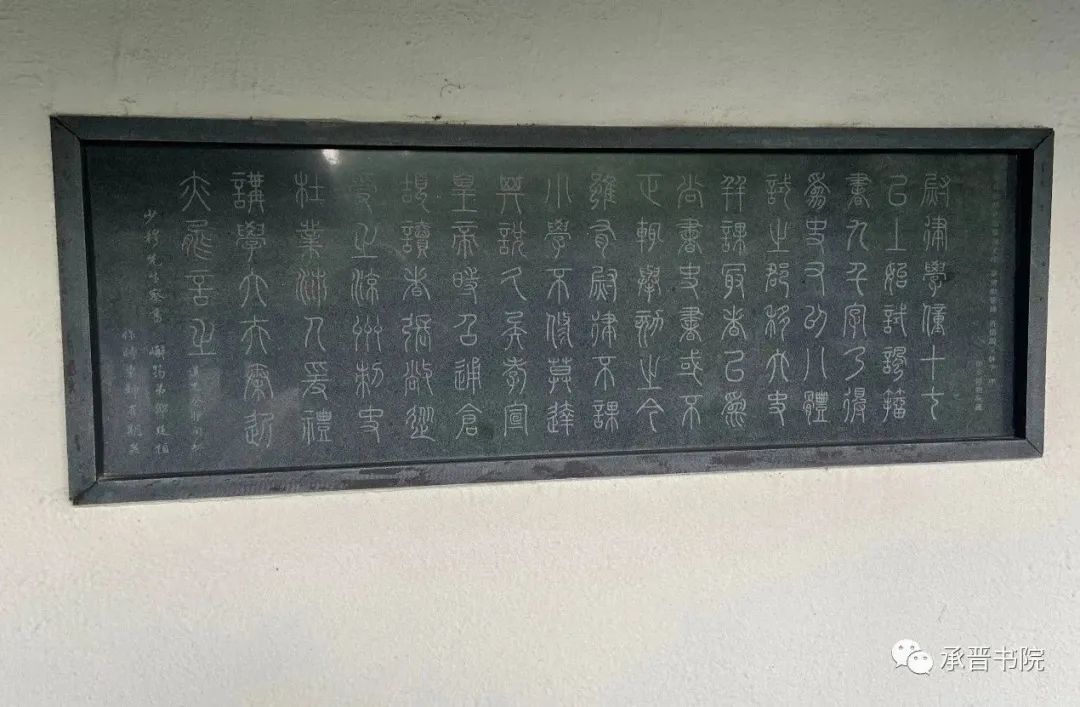 尉律學僮十七
已上始試諷籀
書九千字乃得
為吏又以八體
試之郡移大史
并課冣者以為
尚書史書或不
正輒舉劾之今
雖有尉律不課
小學不修莫達
其說久矣孝宣
皇帝時召通倉
頡讀者張敞從
受之涼州刺史
杜業沛人爰禮
講學大夫秦近
亦能言之
少穆先生察書 嶰筠弟鄧廷楨
承晋书院